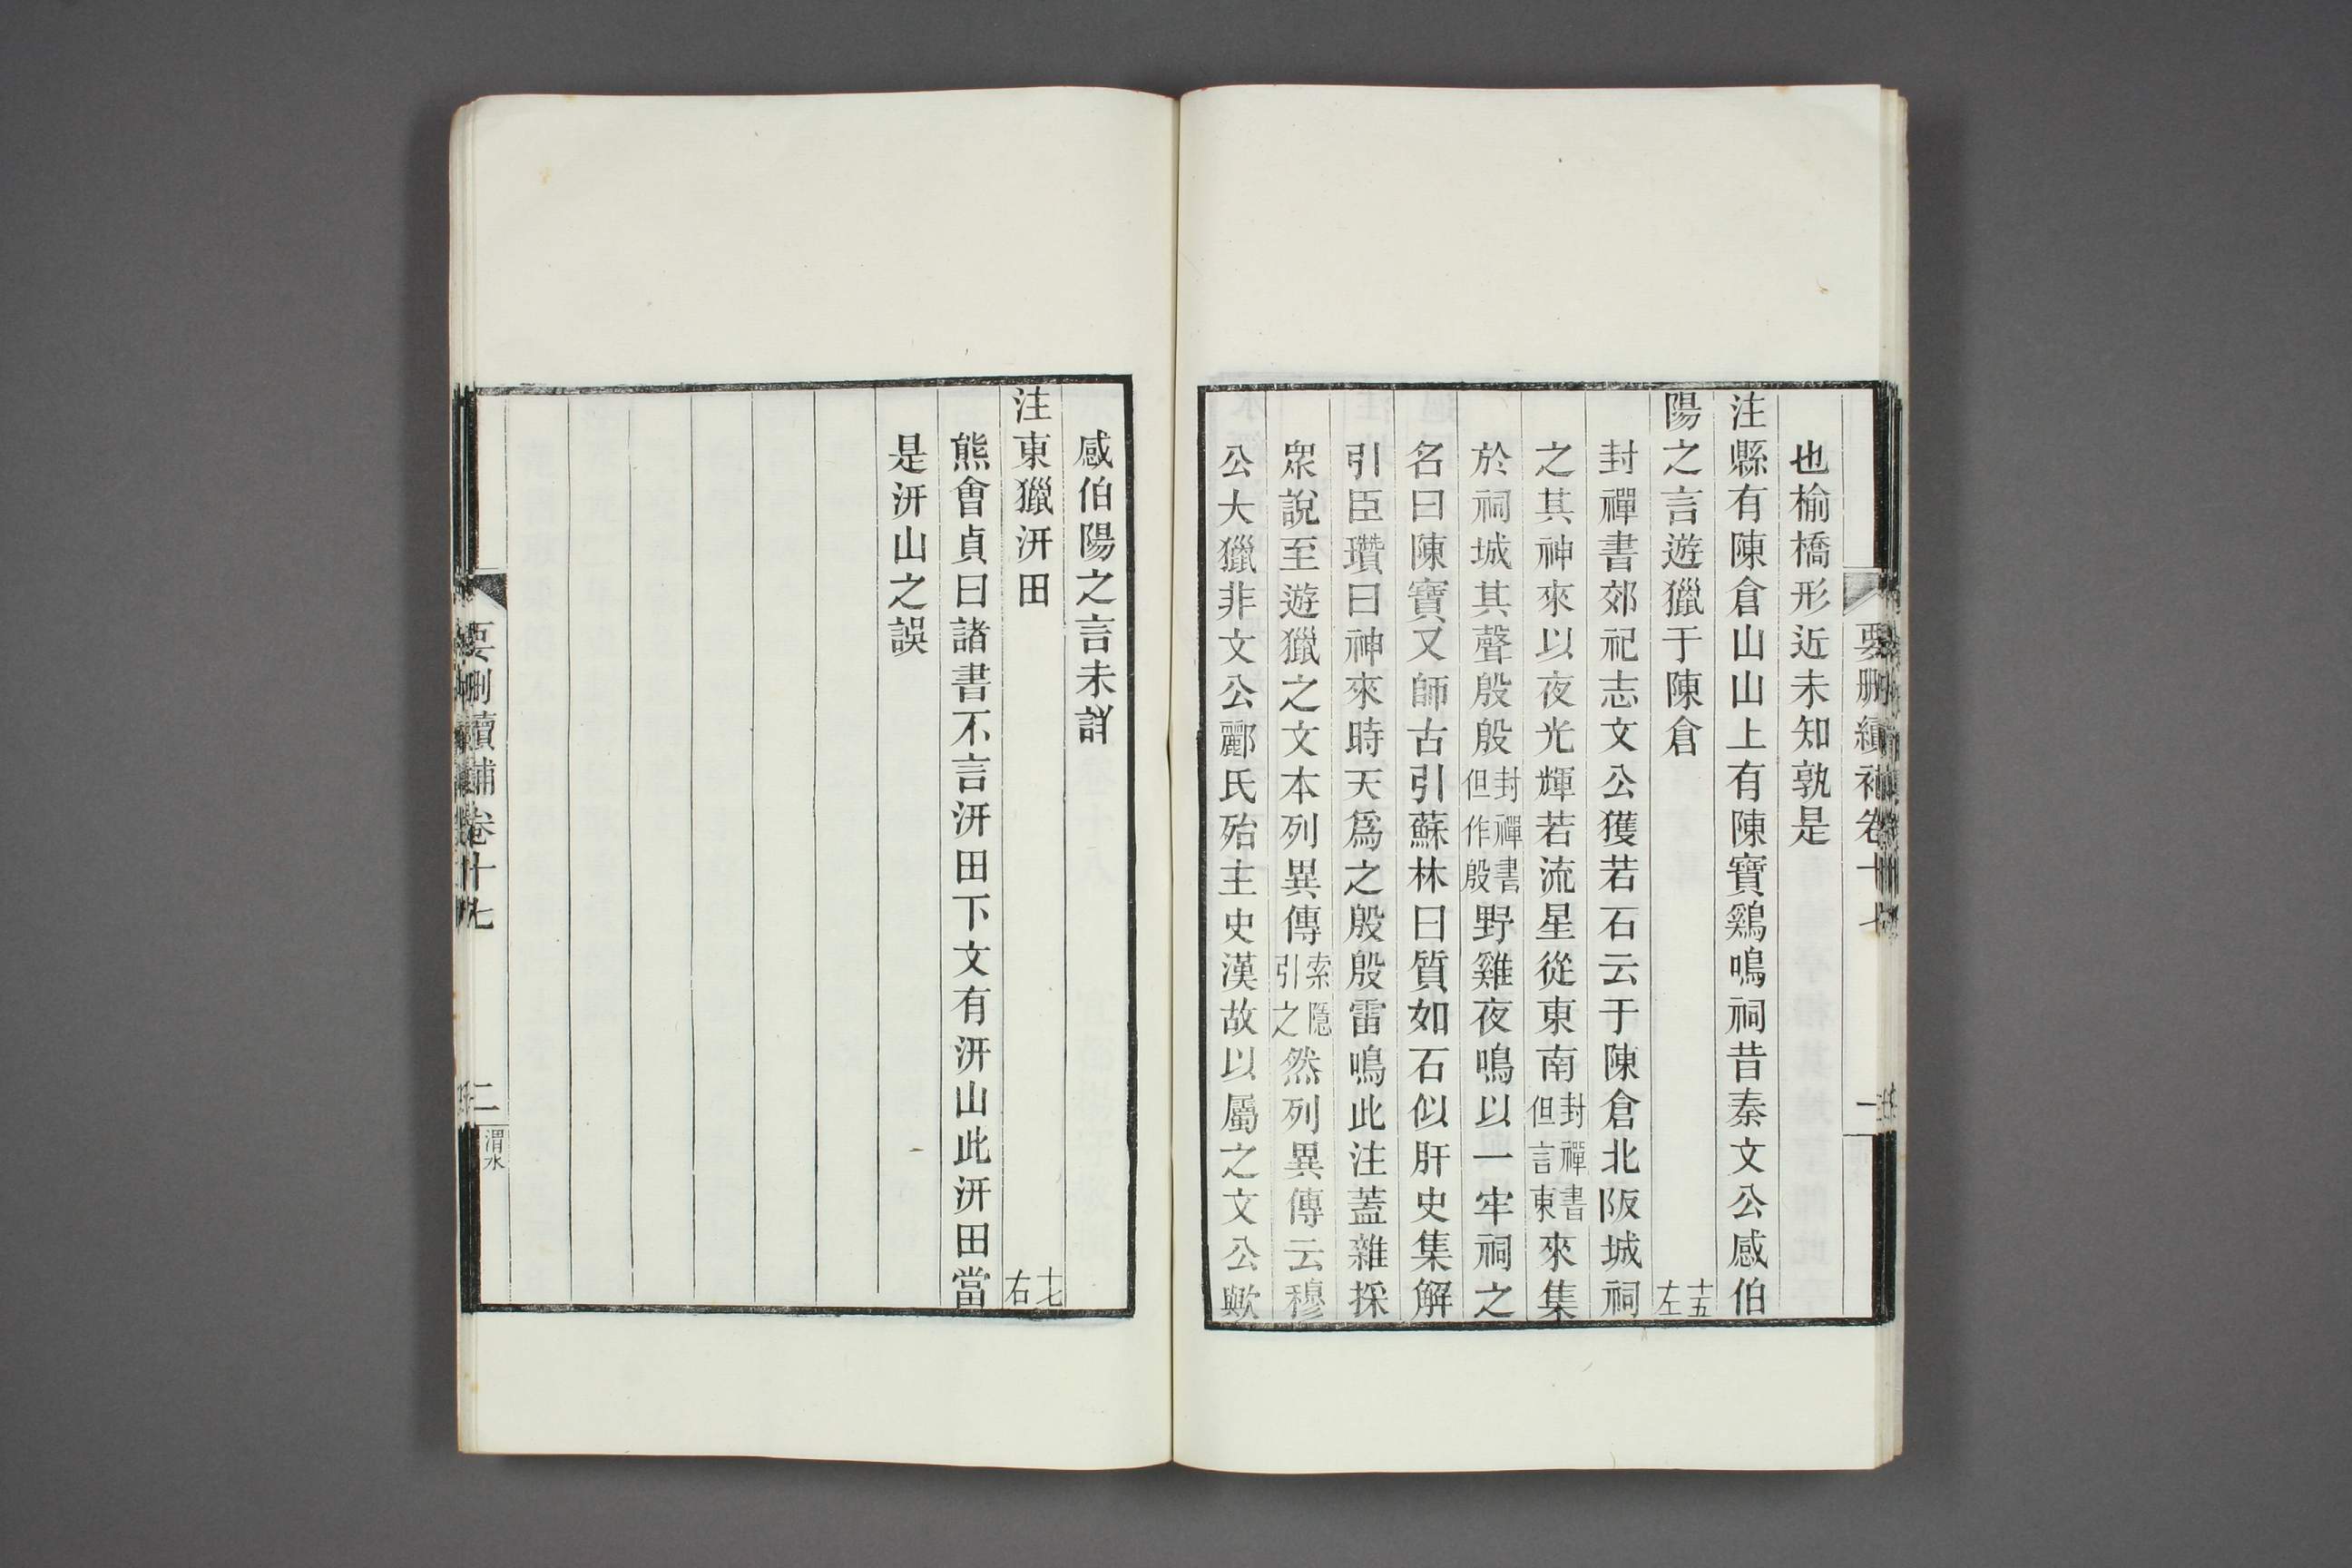 要刪續補卷十七
一
也榆橋形近未知孰是
注縣有陳倉山山上有陳寶鷄鳴祠昔秦文公感伯
陽之言遊獵于陳倉 十五左
封禪書郊祀志文公獲若石云于陳倉北阪城祠
之其神來以夜光輝若流星從東南封禪書但言東來集
於祠城其聲殷殷封禪書但作殷野雞夜鳴以一牢祠之
名曰陳寶又師古引蘇林曰質如石似肝史集解
引臣瓚曰神來時天爲之殷殷雷鳴此注蓋雜採
衆說至遊獵之文本列異傳索隱引之然列異傳云穆
公大獵非文公酈氏殆主史漢故以屬之文公歟
感伯陽之言未詳
注東獵汧田 十七右
熊會貞曰諸書不言汧田下文有汧山此汧田當
是汧山之誤
要刪續補卷十七
二
渭水